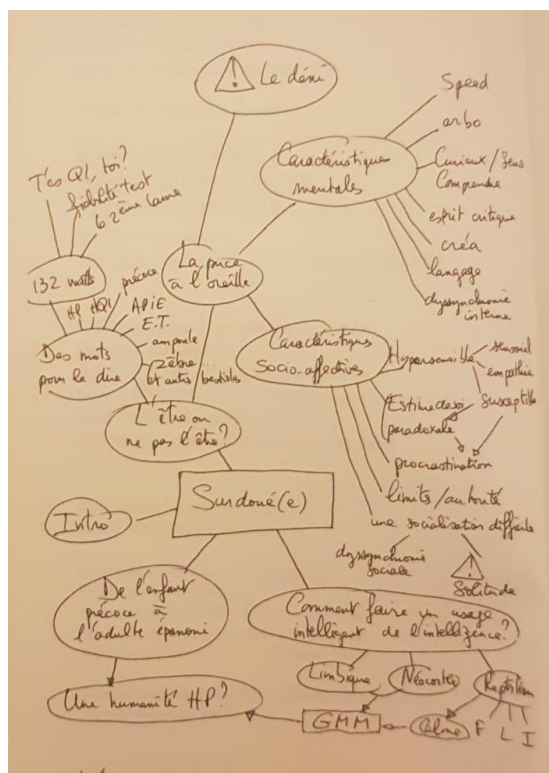 ⚠ Le déni
Speed
arbo
Curieux / Sens
Comprendre
esprit critique
créa
langage
dyssynchronie
interne
Caractéristiques
mentales
T'es QI, toi?
fidélité test
6 2ème lame
132 watts
La puce
à l'oreille
HP
HQI
précoce
APIE
E.T.
ampoule
zèbre ...
et autres bestioles
Des mots
pour le dire
Caractéristiques
Socio-affectives
Hypersensible
sensoriel
empathie
susceptible
Estime de soi
paradoxale
procrastination
limites / autorité
une socialisation difficile
dyssynchronie
sociale
⚠
Solitude
L'être ou
ne pas l'être?
Surdoué(e)
Intro
De l'enfant
précoce à
l'adulte épanoui
Comment faire un usage
intelligent de l'intelligence?
Limbique
Néocortex
Reptilien
Une humanité HP?
GMM
Calme
F
L
I